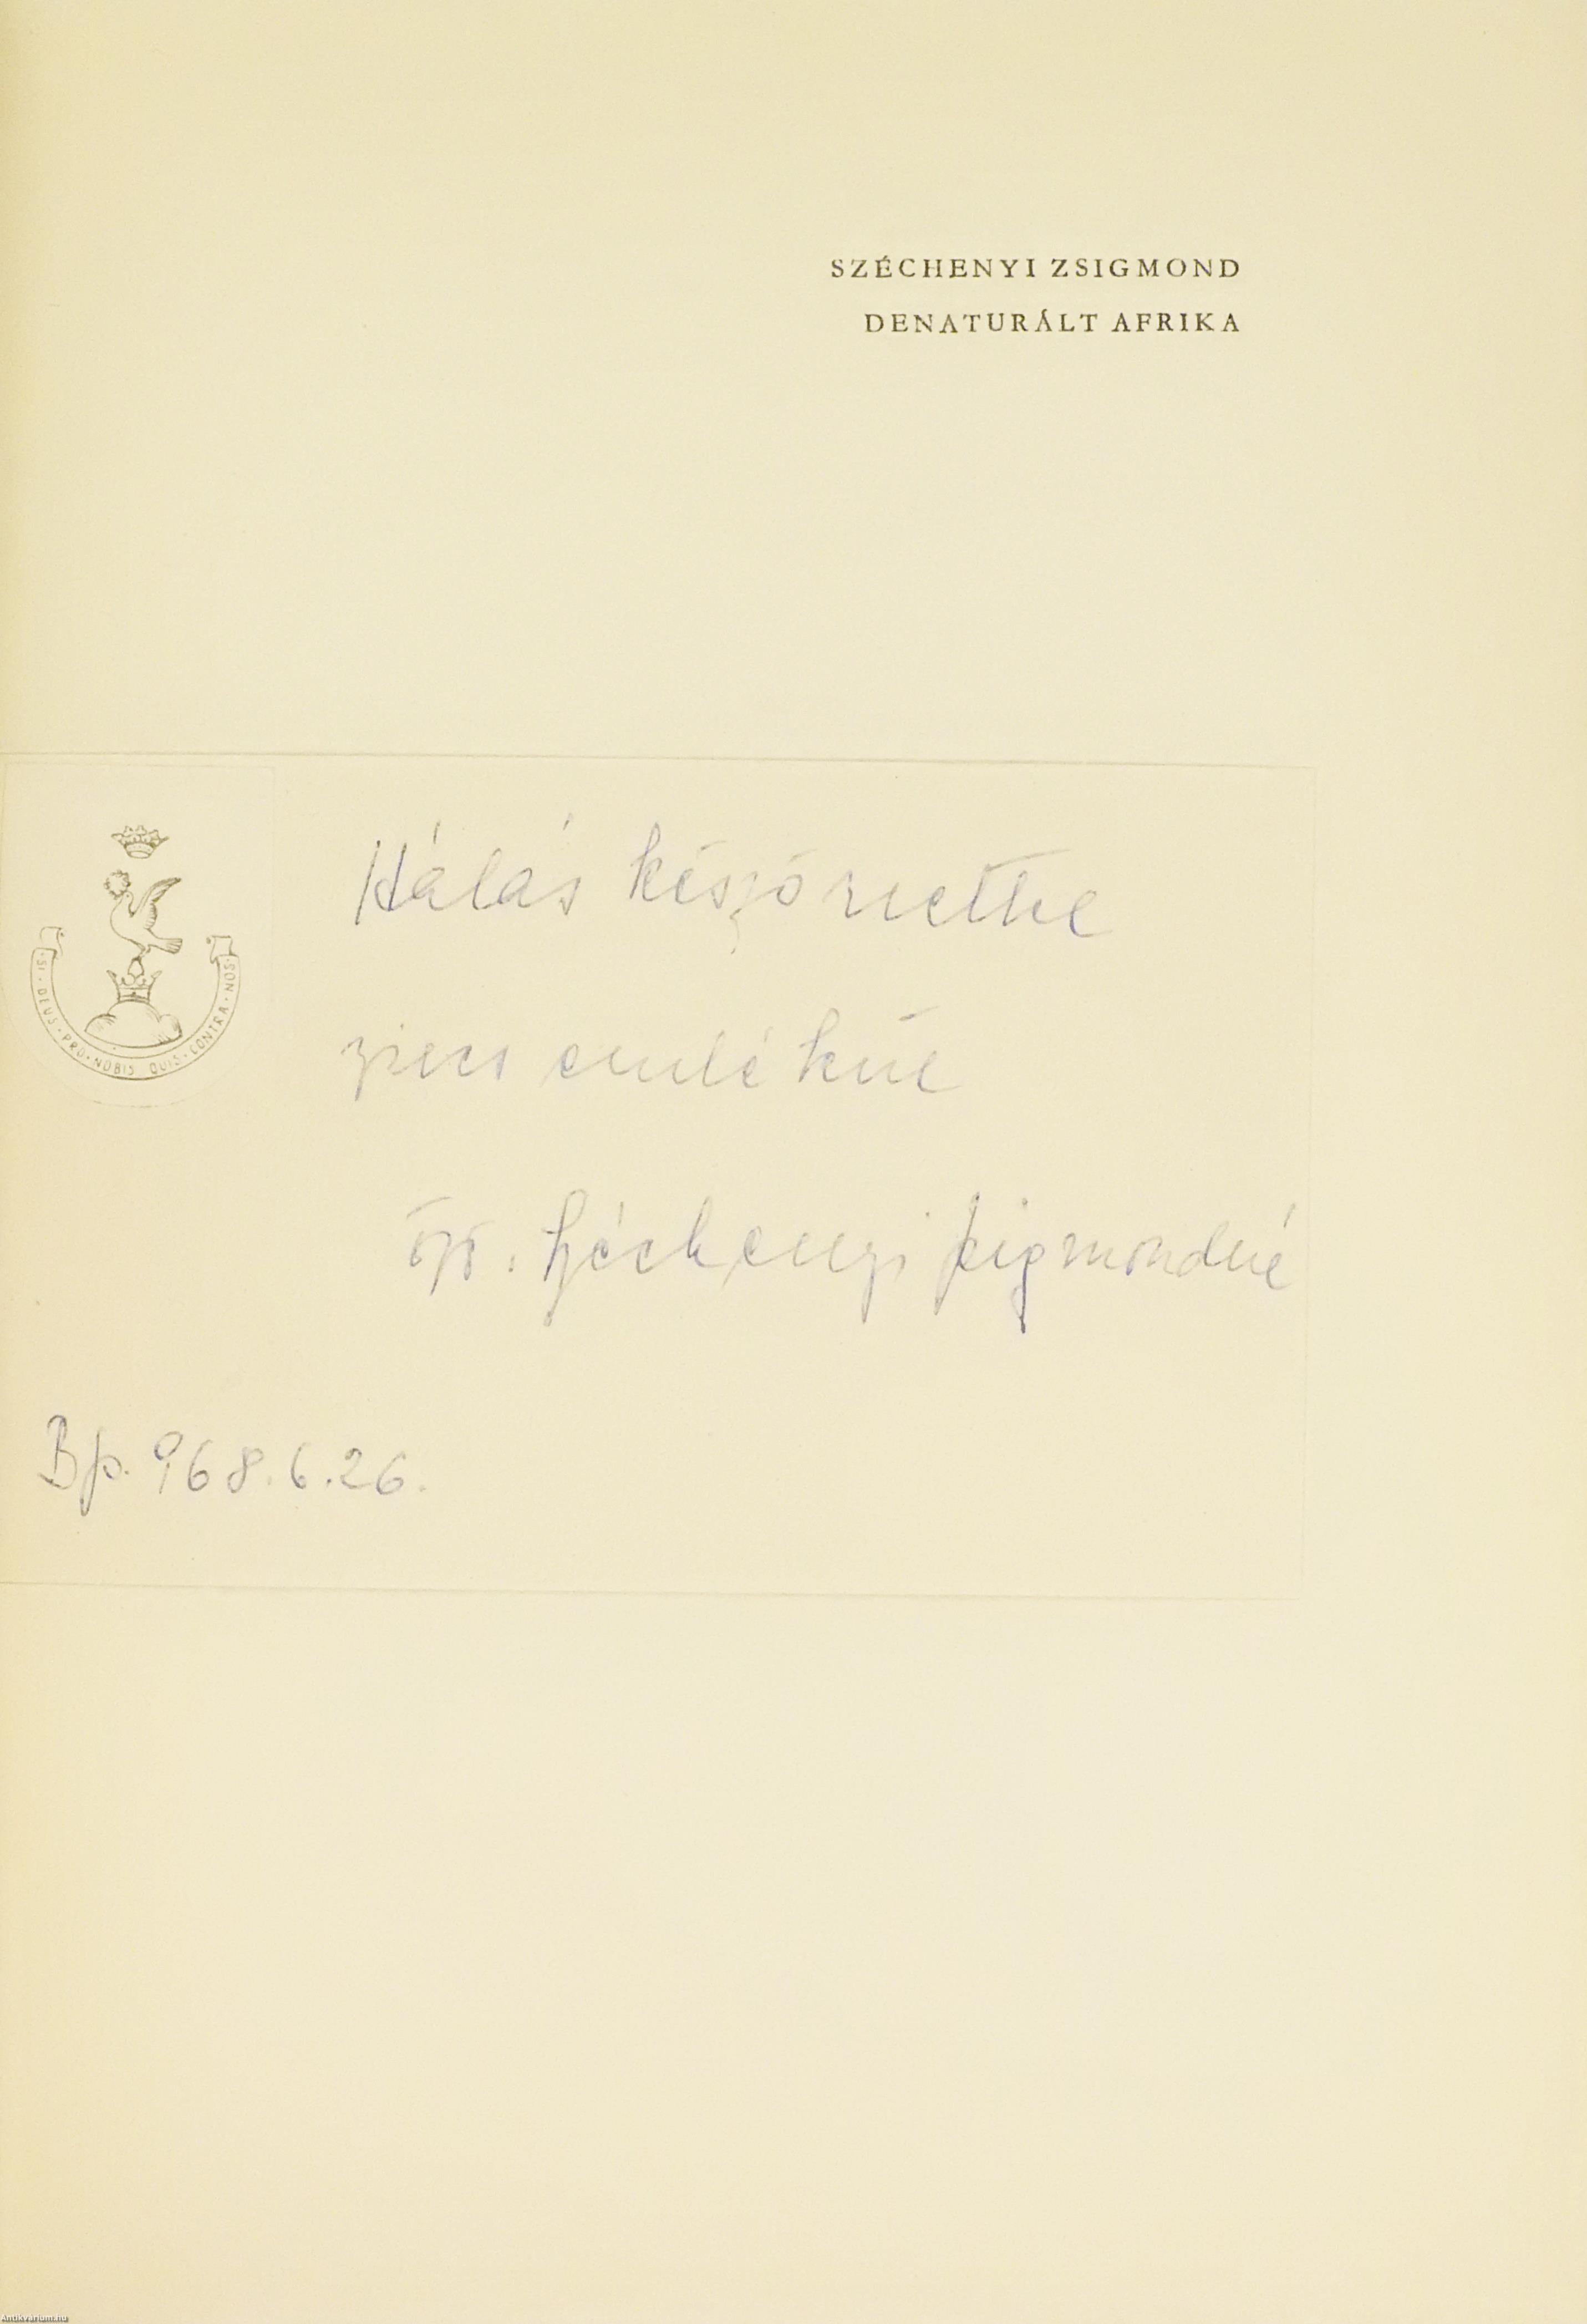 SZÉCHENYI ZSIGMOND
DENATURÁLT AFRIKA
Hálás köszönettel
szives emlékül
özv. Széchenyi Zsigmondné
SI · DEUS · PRO · NOBIS QUIS · CONTRA · NOS
Bp. 968.6.26.
Antikvarium.hu